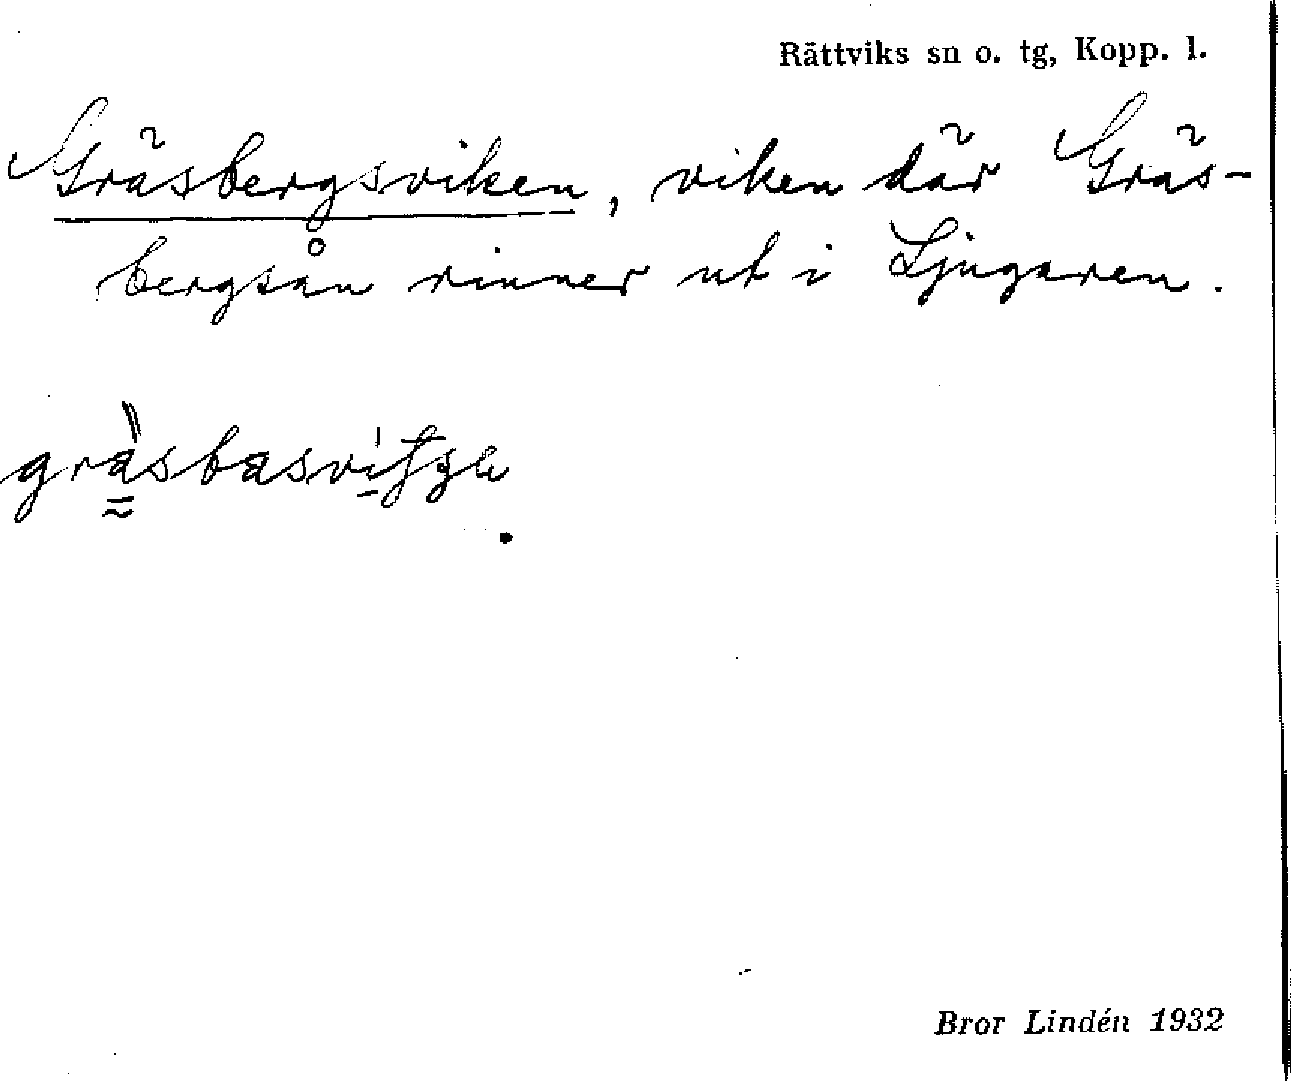 Rättviks sn o. tg, Kopp. l.
Gräsbergsviken, viken där Gräs-
bergsån rinner ut i Ljugaren.
Bror Lindén 1932